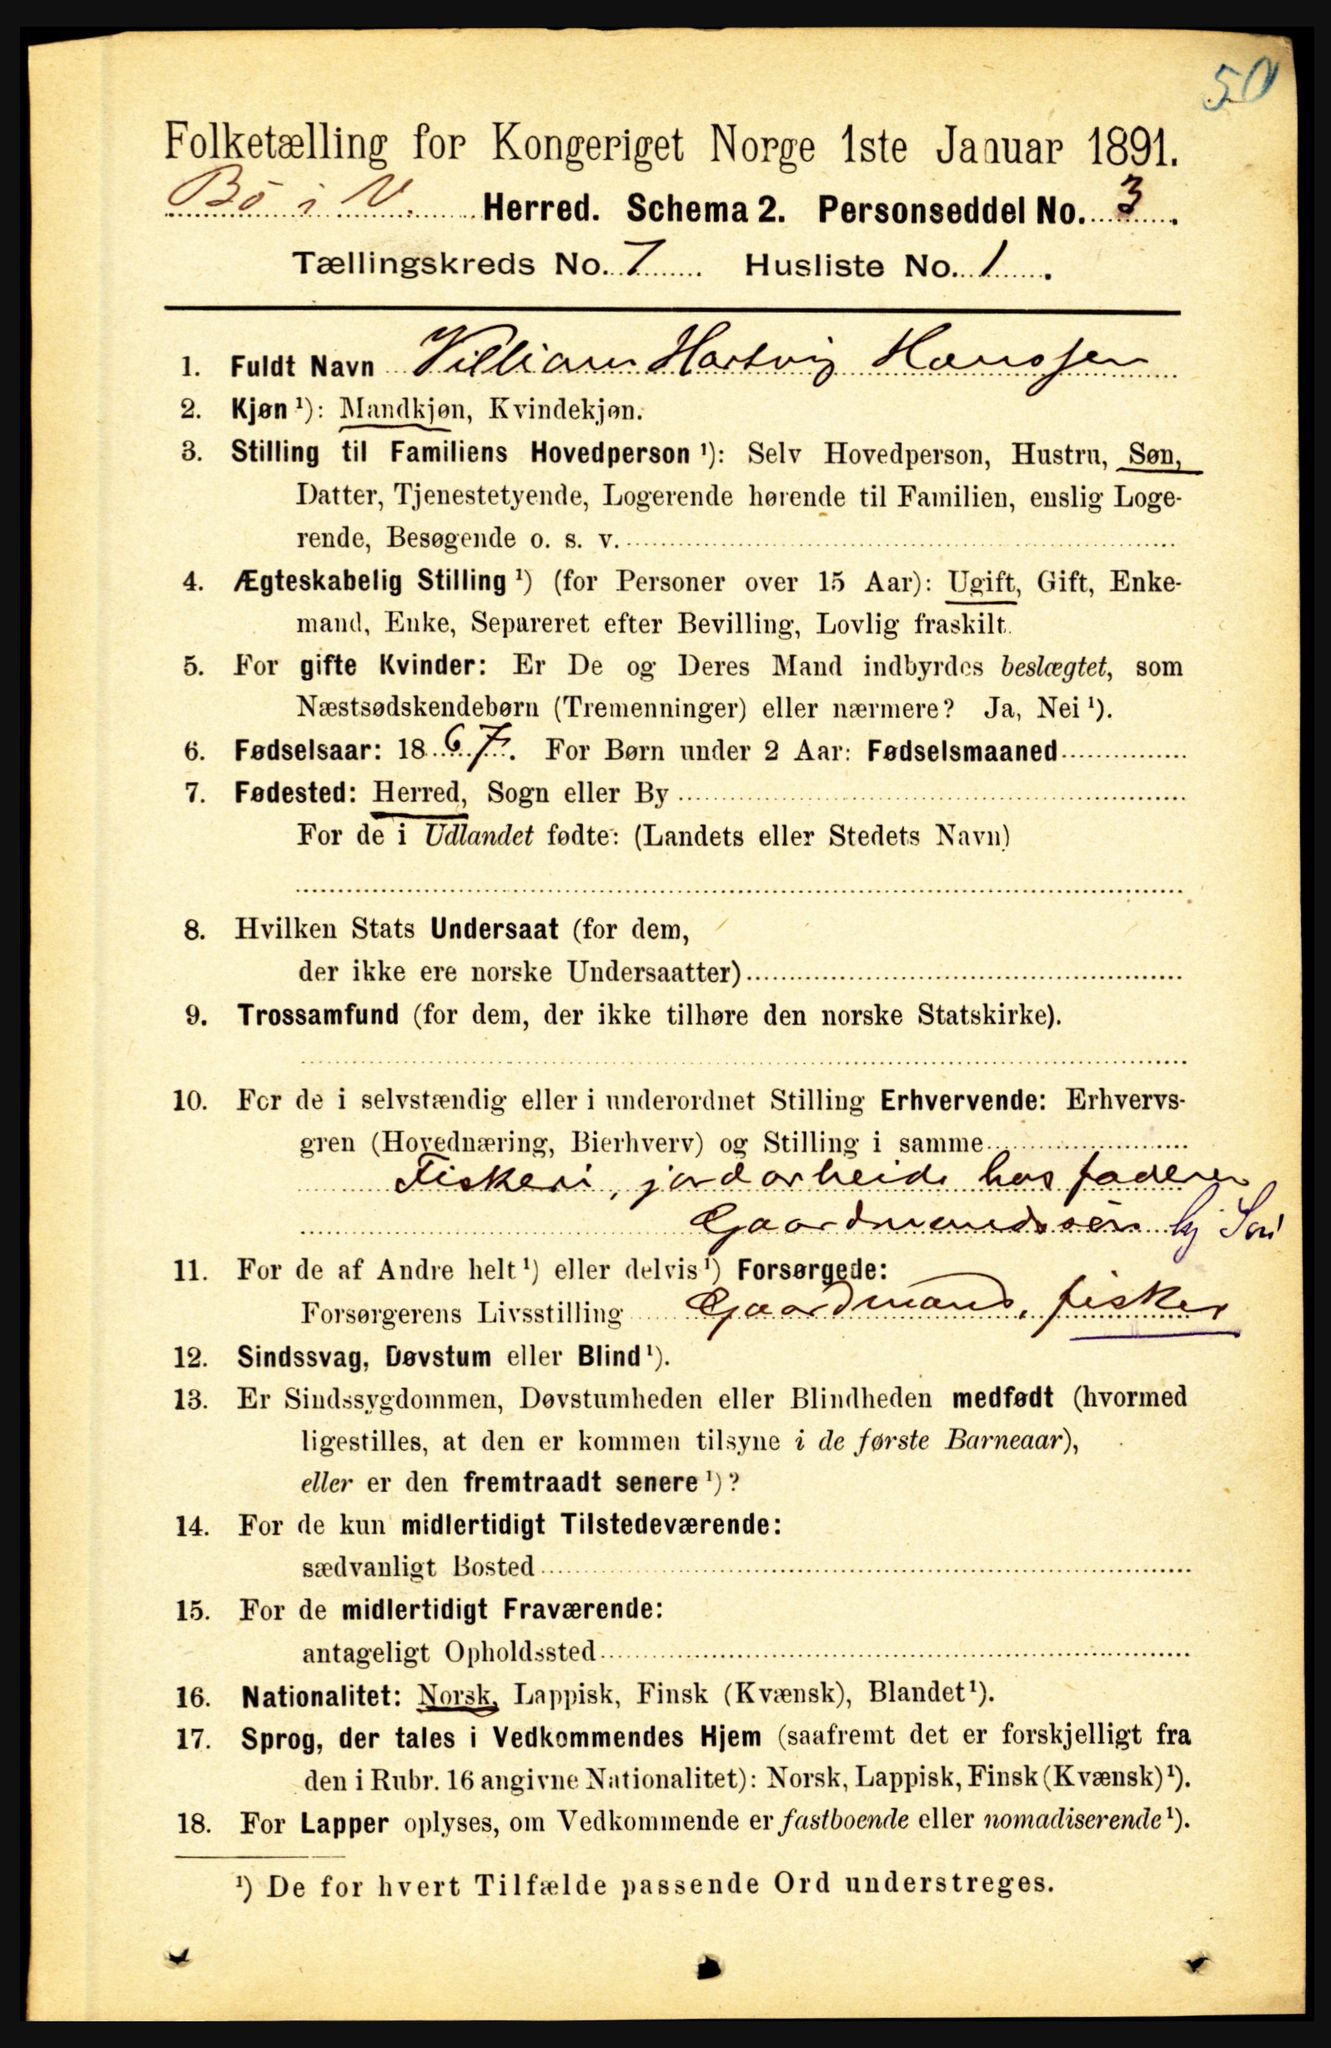 50
Folketælling for Kongeriget Norge 1ste Januar 1891.
Bö i V. Herred. Schema 2. Personseddel No. 3.
Tællingskreds No. 7 Husliste No. 1.
1. Fuldt Navn Villiam Hartvig Hanssen
2. Kjøn ¹): Mandkjøn, Kvindekjøn.
3. Stilling til Familiens Hovedperson ¹): Selv Hovedperson, Hustru, Søn,
Datter, Tjenestetyende, Logerende hørende til Familien, enslig Loge-
rende, Besøgende o. s. v.
4. Ægteskabelig Stilling ¹) (for Personer over 15 Aar): Ugift, Gift, Enke-
mand, Enke, Separeret efter Bevilling, Lovlig fraskilt.
5. For gifte Kvinder: Er De og Deres Mand indbyrdes beslægtet, som
Næstsødskendebørn (Tremenninger) eller nærmere? Ja, Nei ¹).
6. Fødselsaar: 1867. For Børn under 2 Aar: Fødselsmaaned
7. Fødested: Herred, Sogn eller By
For de i Udlandet fødte: (Landets eller Stedets Navn)
8. Hvilken Stats Undersaat (for dem,
der ikke ere norske Undersaatter)
9. Trossamfund (for dem, der ikke tilhøre den norske Statskirke).
10. For de i selvstændig eller i underordnet Stilling Erhvervende: Erhvervs-
gren (Hovednæring, Bierhverv) og Stilling i samme
Fiskeri, jordarbeide hos faderen
Gaardmandssön hj Sön
11. For de af Andre helt ¹) eller delvis ¹) Forsørgede:
Forsørgerens Livsstilling Gaardmand, fisker
12. Sindssvag, Døvstum eller Blind ¹).
13. Er Sindssygdommen, Døvstumheden eller Blindheden medfødt (hvormed
ligestilles, at den er kommen tilsyne i de første Barneaar),
eller er den fremtraadt senere ¹)?
14. For de kun midlertidigt Tilstedeværende:
sædvanligt Bosted
15. For de midlertidigt Fraværende:
antageligt Opholdssted
16. Nationalitet: Norsk, Lappisk, Finsk (Kvænsk), Blandet ¹).
17. Sprog, der tales i Vedkommendes Hjem (saafremt det er forskjelligt fra
den i Rubr. 16 angivne Nationalitet): Norsk, Lappisk, Finsk (Kvænsk) ¹).
18. For Lapper oplyses, om Vedkommende er fastboende eller nomadiserende ¹).
¹) De for hvert Tilfælde passende Ord understreges.